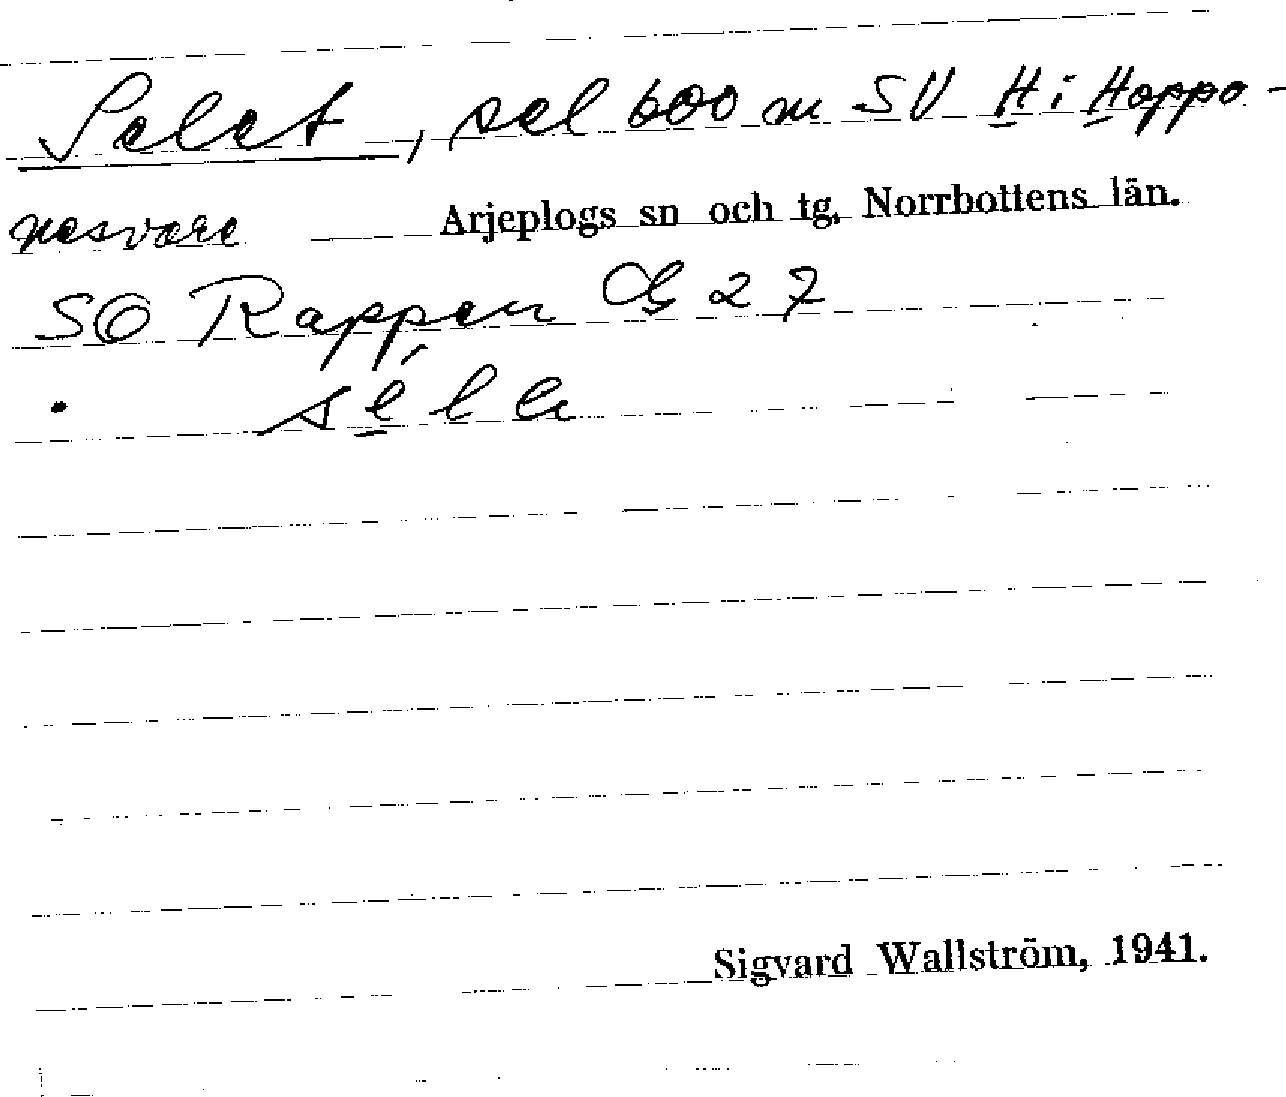 Selet, sel 600 m SV H i Happo-
nesvare Arjeplogs sn och tg. Norrbottens län.
SO Rappen 27
séla
Sigvard Wallström, 1941.